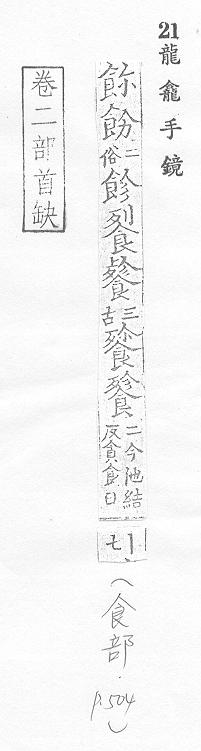 21 龍龕手鏡
二俗 飻 三古 餮 二今他結反貪食曰丨七
(食部.
p.504)
卷二部首缺